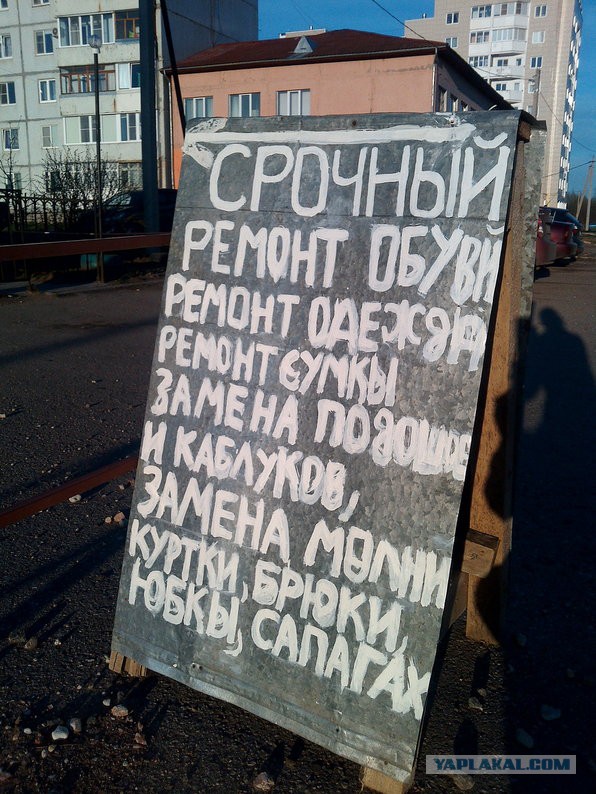 СРОЧНЫЙ
РЕМОНТ ОБУВИ
РЕМОНТ ОДЕЖДА
РЕМОНТ СУМКЫ
ЗАМЕНА ПОДОШВЕ
И КАБЛУКОВ,
ЗАМЕНА МОЛНИ
КУРТКИ, БРЮКИ,
ЮБКЫ, САПАГАХ
YAPLAKAL.COM